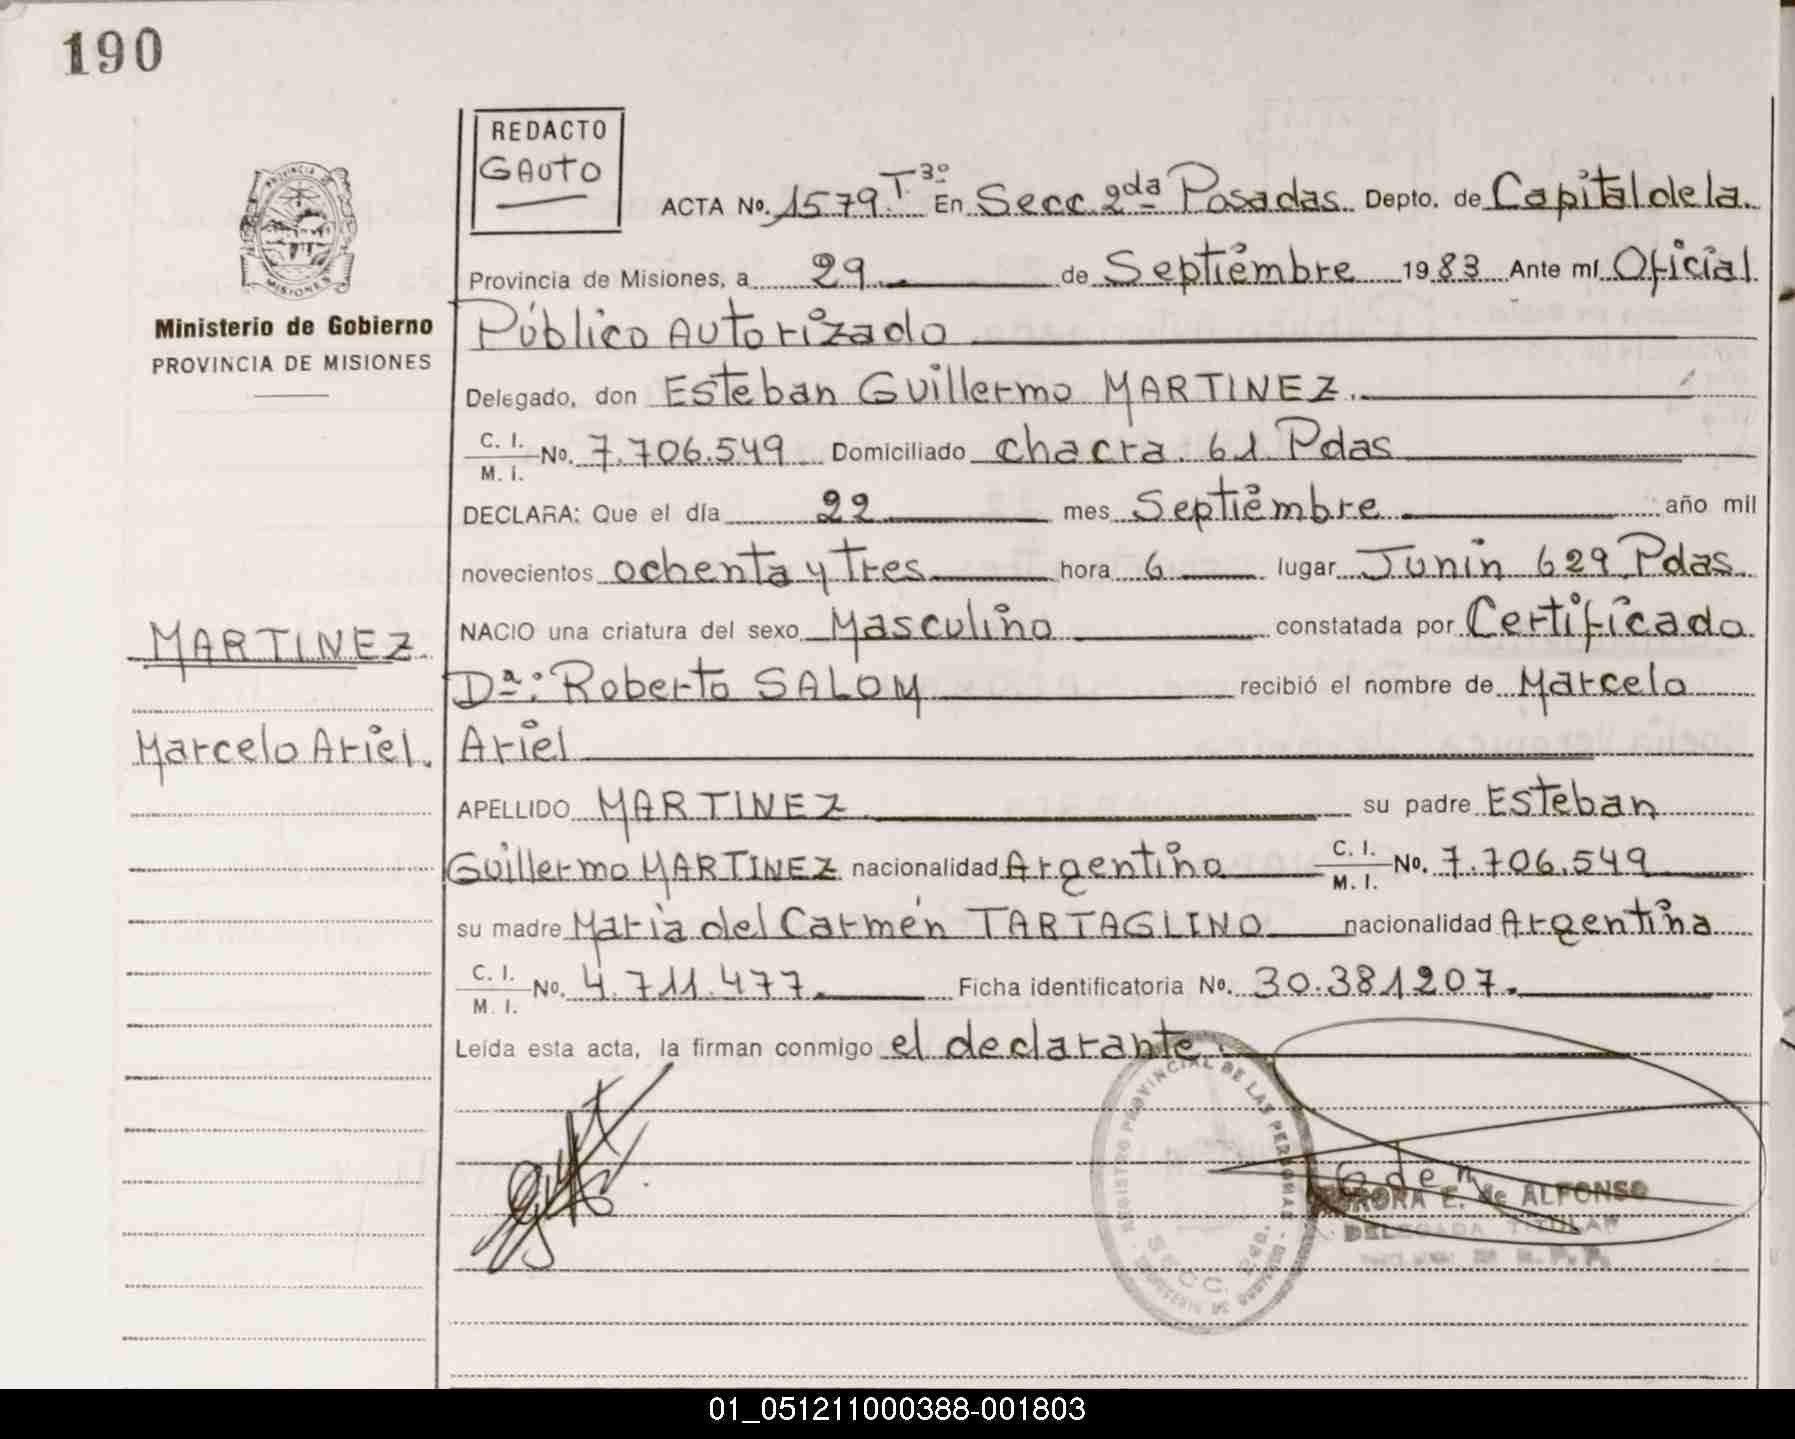 190
REDACTO
GAUTO
ACTA No. 1579 T. 3º En Secc. 2da Posadas Depto. de Capital de la
Provincia de Misiones, a 29 de Septiembre 1983 Ante mí Oficial
Ministerio de Gobierno
PROVINCIA DE MISIONES
Público Autorizado
Delegado, don Esteban Guillermo MARTINEZ.
C. I.
M. I. No. 7.706.549 Domiciliado chacra 61 Pdas
DECLARA: Que el día 22 mes Septiembre año mil
novecientos ochenta y tres hora 6 lugar Junin 629 Pdas
NACIO una criatura del sexo Masculino constatada por Certificado
MARTINEZ
Da: Roberto SALOM recibió el nombre de Marcelo
Marcelo Ariel.
Ariel
APELLIDO MARTINEZ su padre Esteban
Guillermo MARTINEZ nacionalidad Argentino C. I.
M. I. No. 7.706.549
su madre María del Carmen TARTAGLINO nacionalidad Argentina
C. I.
M. I. No. 4.711.477. Ficha identificatoria No. 30.381207.
Leída esta acta, la firman conmigo el declarante.
REGISTRO PROVINCIAL DE LAS PERSONAS
SECC. 2da.
E. de ALFONSO
DELEGADA TITULAR
01_051211000388-001803